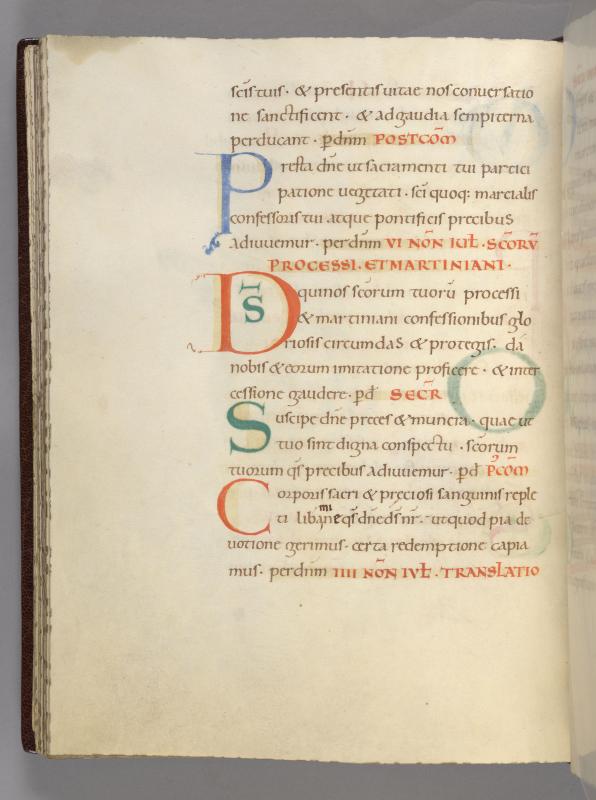 sc̄is tuis · & presentis uitae nos conuersatio
ne sanctificent · & ad gaudia sempiterna
perducant · p̄ dn̄m POSTCOM̄
Presta dn̄e ut sacramenti tui partici
patione uegetati · sc̄i quoq; martialis
confessoris tui atque pontificis precibus
adiuuemur · per dn̄m VI NON̄ IUL̄ · SC̄ORV̄
PROCESSI · ET MARTINIANI ·
DS̄ qui nos sc̄orum tuorū processi
& martiniani confessionibus glo
riosis circumdas & protegis · da
nobis & eorum imitatione proficere · & inter
cessione gaudere · p̄ d̄ SECR̄
Suscipe dn̄e preces & munera · quae ut
tuo sint digna conspectu · sc̄orum
tuorum qs̄ precibus adiuuemur · p̄ d̄ P̄COM̄
Corporis sacri & preciosi sanguinis reple
ti libamine qs̄ dn̄e ds̄ nr̄ · ut quod pia de
uotione gerimus · certa redemptione capia
mus · per dn̄m IIII NON̄ IVL̄ · TRANSLATIO